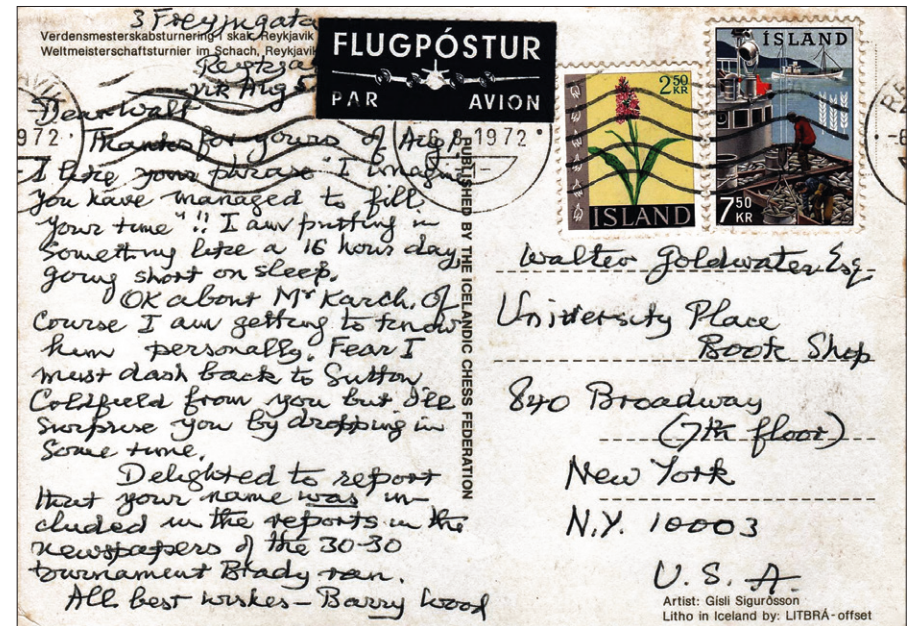 3 Freyjugata
Verdensmesterskabsturnering i skak, Reykjavik
Weltmeisterschaftsturnier im Schach, Reykjavik
Reykja
vik Aug 5
FLUGPÓSTUR
PAR AVION
2 50 KR
ISLAND
ÍSLAND
7 50 KR
972
-6.8.1972
Dear Walt
Thanks for yours of Aug
I like your phrase "I imagine
you have managed to fill
your time"!! I am putting in
something like a 16 hour day,
going short on sleep.
OK about Mr Karch. Of
course I am getting to know
him personally. Fear I
must dash back to Sutton
Coldfield from you but I'll
surprise you by dropping in
some time.
Delighted to report
that your name was in-
cluded in the reports in the
newspapers of the 30-30
tournament Brady ran.
All best wishes - Barry Wood
PUBLISHED BY THE ICELANDIC CHESS FEDERATION
Walter Goldwater Esq.
University Place
Book Shop
840 Broadway
(7th floor)
New York
N.Y. 10003
U.S.A.
Artist: Gísli Sigurðsson
Litho in Iceland by: LITBRÁ-offset